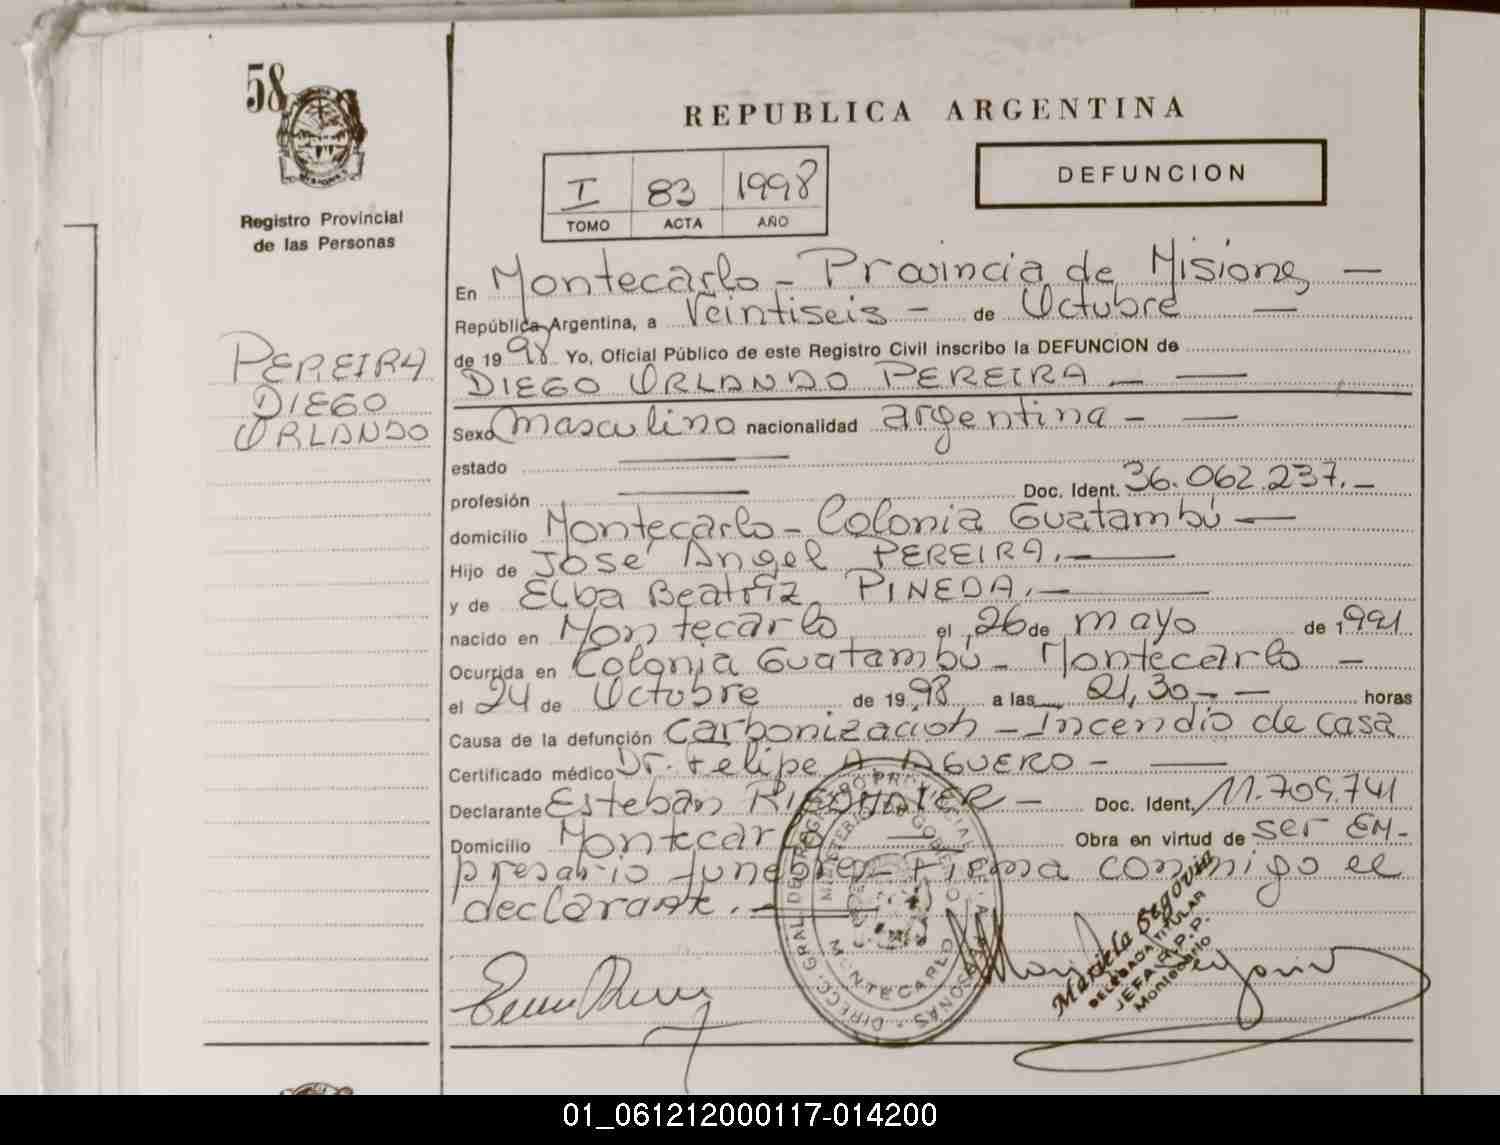 58
Registro Provincial
de las Personas
PEREIRA
DIEGO
ORLANDO
REPUBLICA ARGENTINA
I 83 1998
TOMO ACTA AÑO
DEFUNCION
En Montecarlo - Provincia de Misiones —
República Argentina, a Veintiseis - de Octubre —
de 1998 Yo, Oficial Público de este Registro Civil inscribo la DEFUNCION de
DIEGO ORLANDO PEREIRA — —
Sexo masculino nacionalidad argentina - —
estado —
profesión — Doc. Ident. 36.062.237.-
domicilio Montecarlo - Colonia Guatambú —
Hijo de José Angel PEREIRA.—
y de Elba Beatriz PINEDA.—
nacido en Montecarlo el 26 de mayo de 1991
Ocurrida en Colonia Guatambú - Montecarlo —
el 24 de Octubre de 1998 a las 21,30 - — horas
Causa de la defunción Carbonización - Incendio de casa
Certificado médico Dr. Felipe A AGUERO - —
Declarante Esteban - Doc. Ident. 11.709.741
Domicilio Montecarlo — Obra en virtud de ser Em-
presario funebre - Firma conmigo el
declarante.—
DIRECC. GRAL. DEL REGISTRO PROVINCIAL DE LAS PERSONAS
MINISTERIO DE GOBIERNO
MONTECARLO
Mariela Segovia
DELEGADA TITULAR
JEFA R.P.P.
Montecarlo
01_061212000117-014200